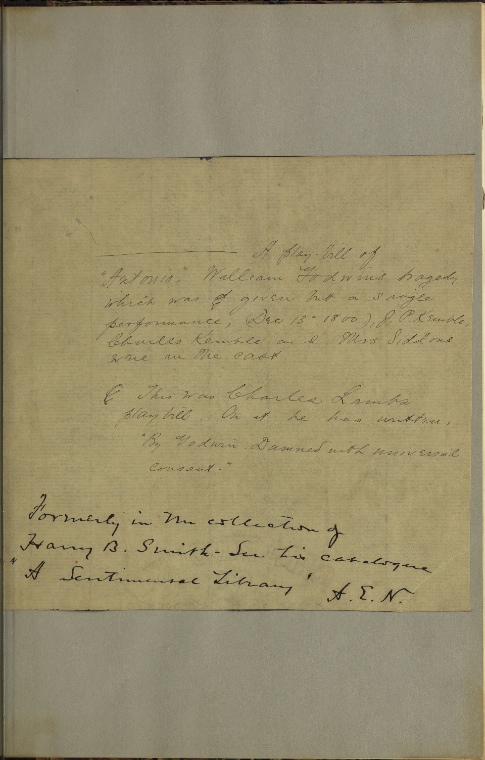 A play-bill of
"Antonio," William Godwin's tragedy
which was given but a single
performance, Dec 13th 1800). J. P. Kemble,
Charles Kemble and Mrs Siddons
were in the cast
This was Charles Lambs
playbill. On it he has written,
"By Godwin Damned with universal
consent."
Formerly in the collection of
Harry B. Smith - See his catalogue
"A Sentimental Library" A. E. N.